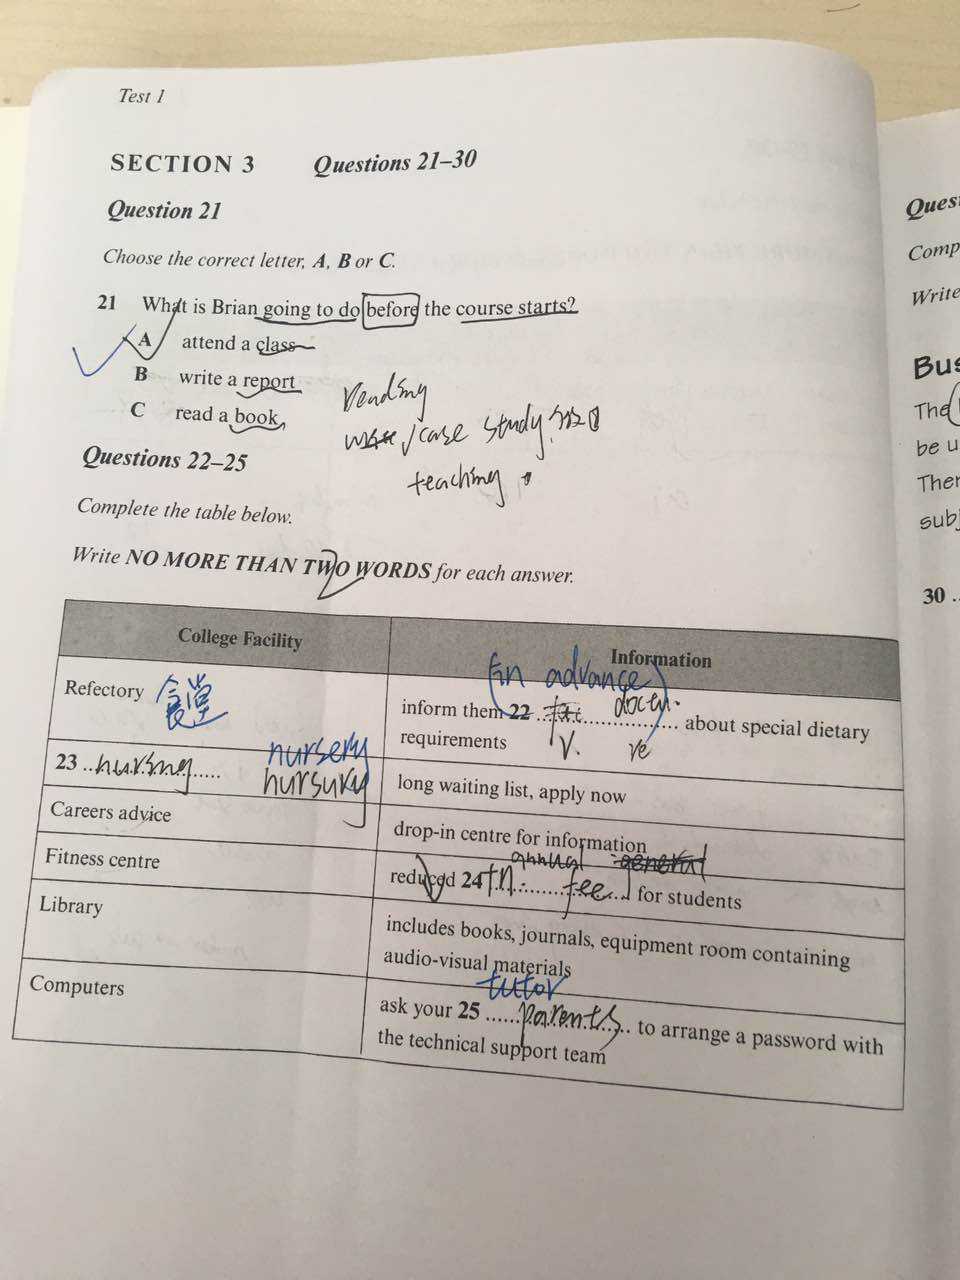 Test 1
SECTION 3 Questions 21–30
Question 21
Choose the correct letter, A, B or C.
21 What is Brian going to do before the course starts?
A attend a class
B write a report
C read a book
reading
/case study
teaching
Questions 22–25
Complete the table below.
Write NO MORE THAN TWO WORDS for each answer.
College Facility
Information
Refectory 食堂
(in advance)
inform them 22 .................... about special dietary
requirements
v.
23 ..nursing.....
nursery
nursury
long waiting list, apply now
Careers advice
drop-in centre for information
Fitness centre
annual general
reduced 24 ....... fee .... for students
Library
includes books, journals, equipment room containing
audio-visual materials
Computers
tutor
ask your 25 ......parents.... to arrange a password with
the technical support team
Ques
Comp
Write
Bus
The
be u
Ther
subj
30 ..